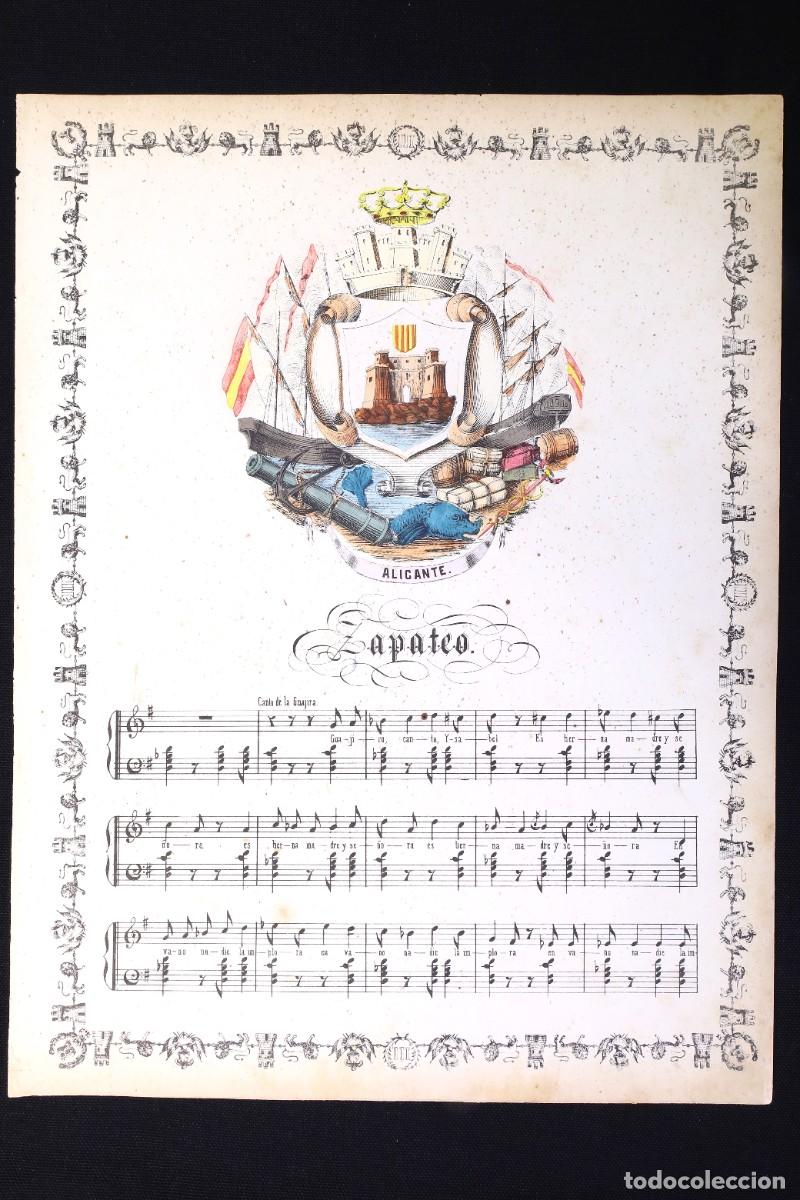 ALICANTE.
Zapateo.
Canto de la Guajira.
Gua-ji-ro, can-ta, Y-sa-bel Es her-na ma-dre y se
ño-ra, es her-na ma-dre y se-ño-ra es her-na ma-dre y se ño-ra En
va-no na-die la im-plo ra en va-no na-die la im plo-ra en va-no na-die la im-
todocoleccion